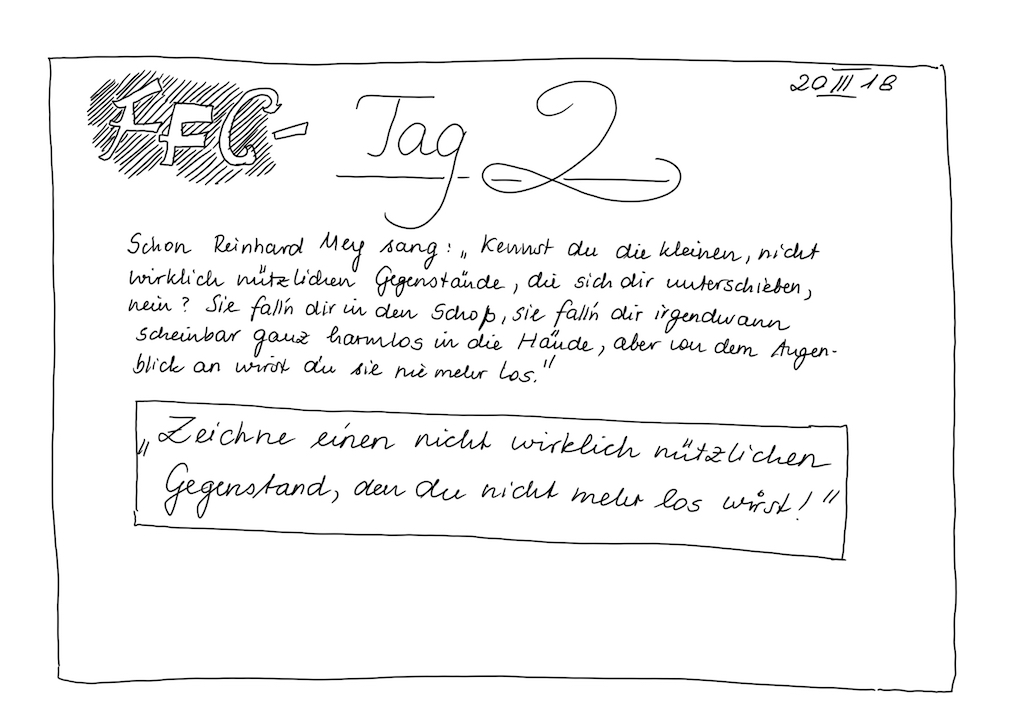 20 III 18
FFC - Tag 2
Schon Reinhard Mey sang: „Kennst du die kleinen, nicht
wirklich nützlichen Gegenstände, die sich dir unterschieben,
nein? Sie fall'n dir in den Schoß, sie fall'n dir irgendwann
scheinbar ganz harmlos in die Hände, aber von dem Augen-
blick an wirst du sie nie mehr los."
„Zeichne einen nicht wirklich nützlichen
Gegenstand, den du nicht mehr los wirst!"